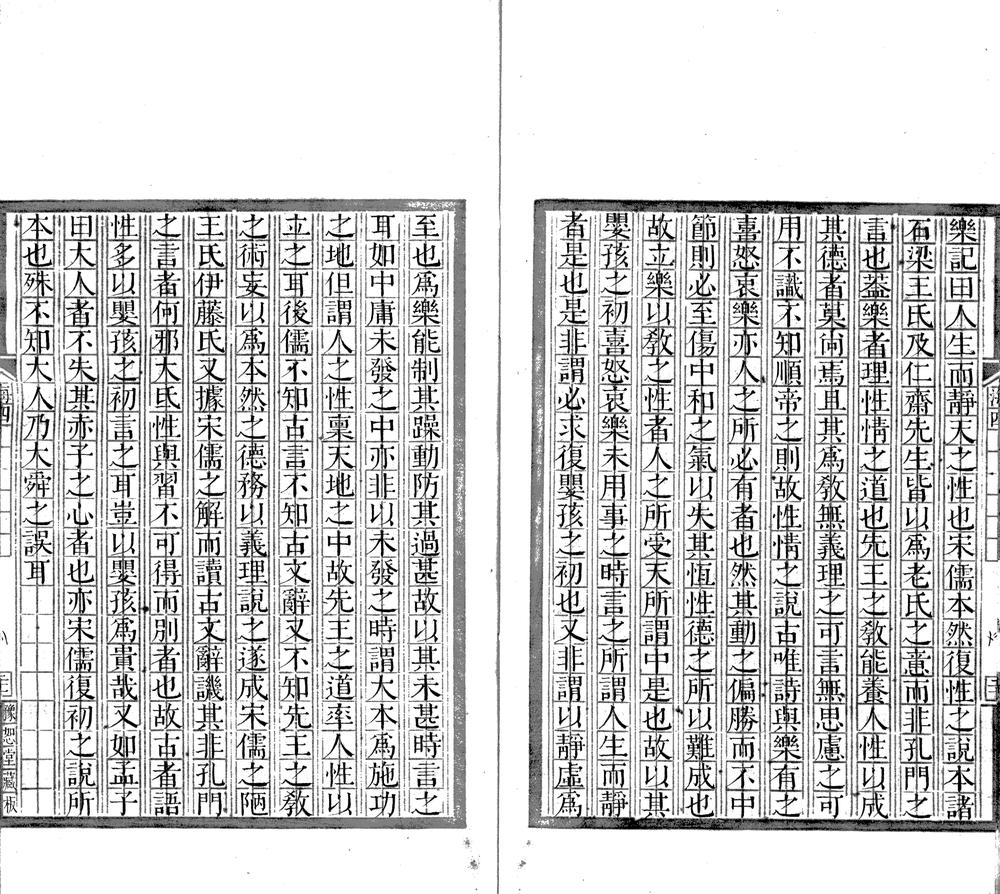 樂記曰人生而靜天之性也宋儒本然復性之說本諸
石梁王氏及仁齋先生皆以爲老氏之意而非孔門之
言也葢樂者理性情之道也先王之敎能養人性以成
其德者莫尙焉且其爲敎無義理之可言無思慮之可
用不識不知順帝之則故性情之說古唯詩與樂有之
喜怒哀樂亦人之所必有者也然其動之偏勝而不中
節則必至傷中和之氣以失其恆性德之所以難成也
故立樂以敎之性者人之所受天所謂中是也故以其
嬰孩之初喜怒哀樂未用事之時言之所謂人生而靜
者是也是非謂必求復嬰孩之初也又非謂以靜虛爲
至也爲樂能制其躁動防其過甚故以其未甚時言之
耳如中庸未發之中亦非以未發之時謂大本爲施功
之地但謂人之性稟天地之中故先王之道率人性以
立之耳後儒不知古言不知古文辭又不知先王之敎
之術妄以爲本然之德務以義理說之遂成宋儒之陋
王氏伊藤氏又據宋儒之解而讀古文辭譏其非孔門
之言者何邪大氐性與習不可得而別者也故古者語
性多以嬰孩之初言之耳豈以嬰孩爲貴哉又如孟子
曰大人者不失其赤子之心者也亦宋儒復初之說所
本也殊不知大人乃大舜之誤耳
豫恕堂藏板